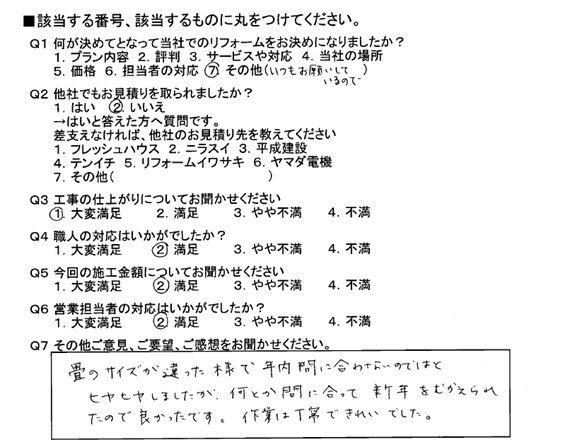 ■該当する番号、該当するものに丸をつけてください。
Q1 何が決めてとなって当社でのリフォームをお決めになりましたか？
1. プラン内容 2. 評判 3. サービスや対応 4. 当社の場所
5. 価格 6. 担当者の対応 ⑦ その他(いつもお願いして
いるので)
Q2 他社でもお見積りを取られましたか？
1. はい ② いいえ
→はいと答えた方へ質問です。
差支えなければ、他社のお見積り先を教えてください
1. フレッシュハウス 2. ニラスイ 3. 平成建設
4. テンイチ 5. リフォームイワサキ 6. ヤマダ電機
7. その他( )
Q3 工事の仕上がりについてお聞かせください
① 大変満足 2. 満足 3. やや不満 4. 不満
Q4 職人の対応はいかがでしたか？
1. 大変満足 ② 満足 3. やや不満 4. 不満
Q5 今回の施工金額についてお聞かせください
1. 大変満足 ② 満足 3. やや不満 4. 不満
Q6 営業担当者の対応はいかがでしたか？
1. 大変満足 ② 満足 3. やや不満 4. 不満
Q7 その他ご意見、ご要望、ご感想をお聞かせください。
畳のサイズが違った様で年内間に合わないのではと
ヒヤヒヤしましたが、何とか間に合って新年をむかえられ
たので良かったです。作業は丁寧できれいでした。